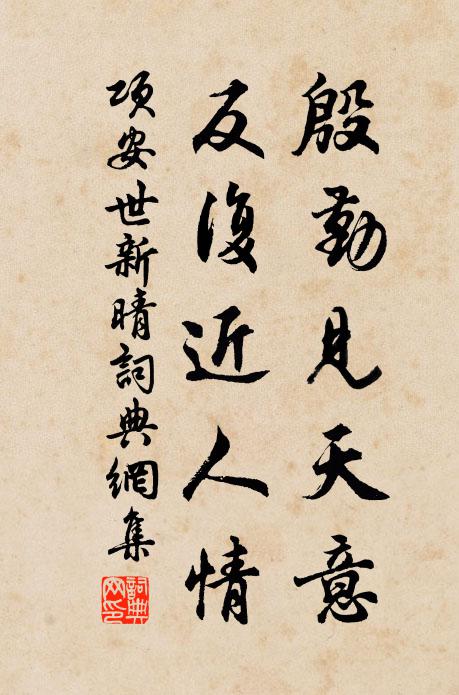 殷勤見天意
反復近人情
項安世新晴詞典網集
詞典網印